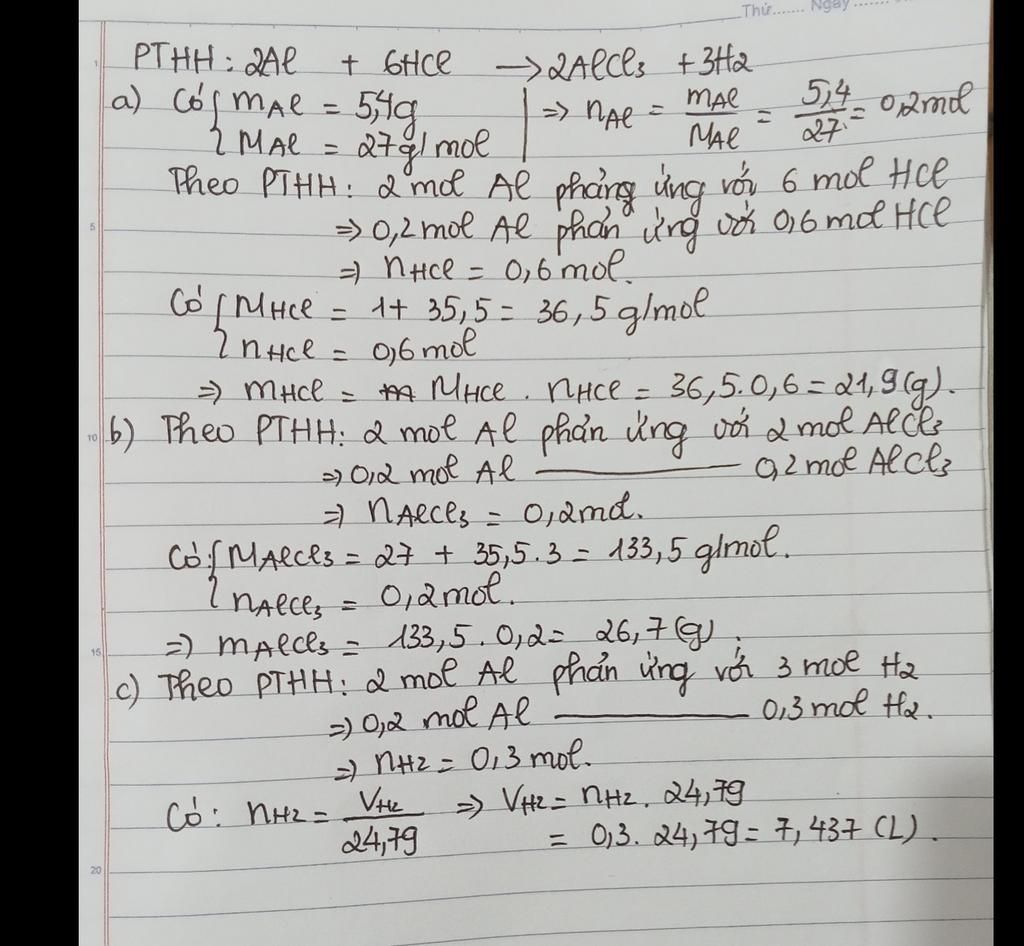 Thứ....... Ngày.........
PTHH: 2Al + 6HCl → 2AlCl3 + 3H2
a) Có { mAl = 5,4g | => nAl = mAl/MAl = 5,4/27 = 0,2mol
{ MAl = 27g/mol
Theo PTHH: 2 mol Al phảng ứng với 6 mol HCl
=> 0,2 mol Al phản ứng với 0,6 mol HCl
=> nHCl = 0,6 mol.
Có { MHCl = 1+ 35,5 = 36,5 g/mol
{ nHCl = 0,6 mol
=> mHCl = m MHCl . nHCl = 36,5.0,6 = 21,9(g).
b) Theo PTHH: 2 mol Al phản ứng với 2 mol AlCl3
=> 0,2 mol Al ——— 0,2 mol AlCl3
=> nAlCl3 = 0,2mol.
Có: { MAlCl3 = 27 + 35,5.3 = 133,5 g/mol.
{ nAlCl3 = 0,2 mol.
=> mAlCl3 = 133,5.0,2 = 26,7(g).
c) Theo PTHH: 2 mol Al phản ứng với 3 mol H2
=> 0,2 mol Al ——— 0,3 mol H2.
=> nH2 = 0,3 mol.
Có: nH2 = VH2/24,79 => VH2 = nH2 . 24,79
= 0,3. 24,79 = 7,437 (L).